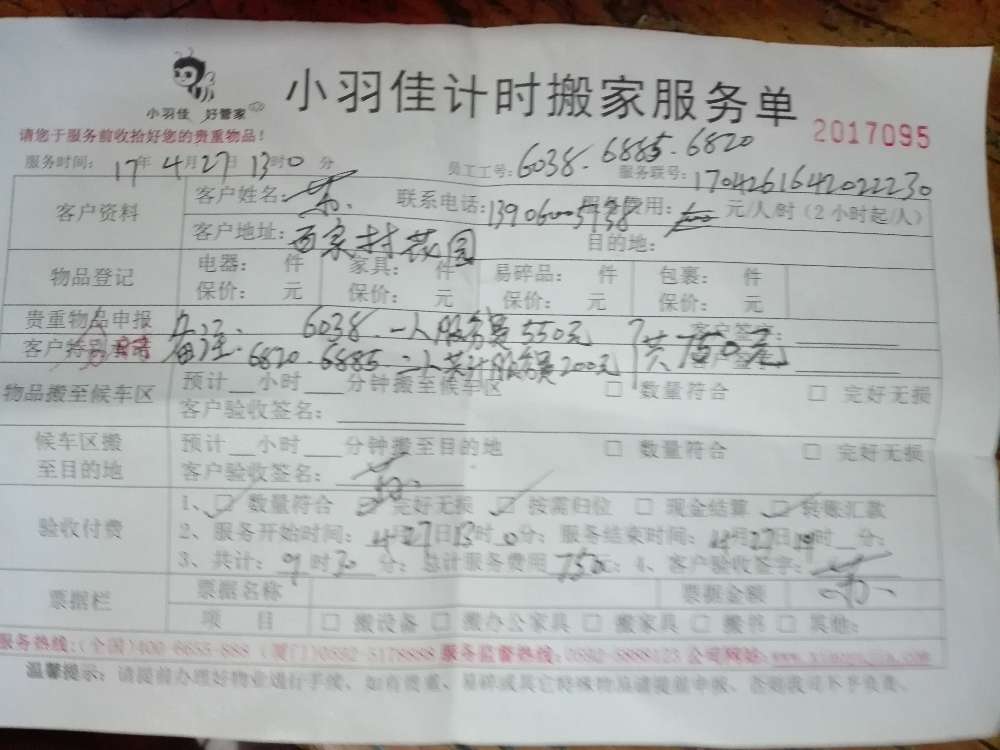 小羽佳 好管家
小羽佳计时搬家服务单
2017095
请您于服务前收拾好您的贵重物品!
服务时间: 17年4月27日13时0分 员工工号: 6038. 6885. 6820 服务联号: 1704261642022230
客户资料 客户姓名: 联系电话: 服务费用: 元/人/时(2小时起/人)
客户地址: 花园 目的地:
物品登记 电器: 件 家具: 件 易碎品: 件 包裹: 件
保价: 元 保价: 元 保价: 元 保价: 元
贵重物品申报 备注: 6038 一人服务费550元 共750元 客户签字:
客户特别 6820.6885 二人共计服务费200元
物品搬至候车区 预计__小时___分钟搬至候车区 □ 数量符合 □ 完好无损
客户验收签名:
候车区搬至目的地 预计__小时___分钟搬至目的地 □ 数量符合 □ 完好无损
客户验收签名:
验收付费 1、□ 数量符合 □ 完好无损 □ 按需归位 □ 现金结算 □ 转账汇款
2、服务开始时间: 4月27日13时0分; 服务结束时间: 4月27日 时__分;
3、共计: 9时30分; 总计服务费用750元; 4、客户验收签字:
票据栏 票据名称 票据金额
项 目 □ 搬设备 □ 搬办公家具 □ 搬家具 □ 搬书 □ 其他:
服务热线:(全国)400-6655-888 (厦门)0592-5178888 服务监督热线:0592-5888123 公司网站:
温馨提示: 请提前办理好物业通行手续, 如有贵重、易碎或其它特殊物品请提前申报, 否则我司不予负责。